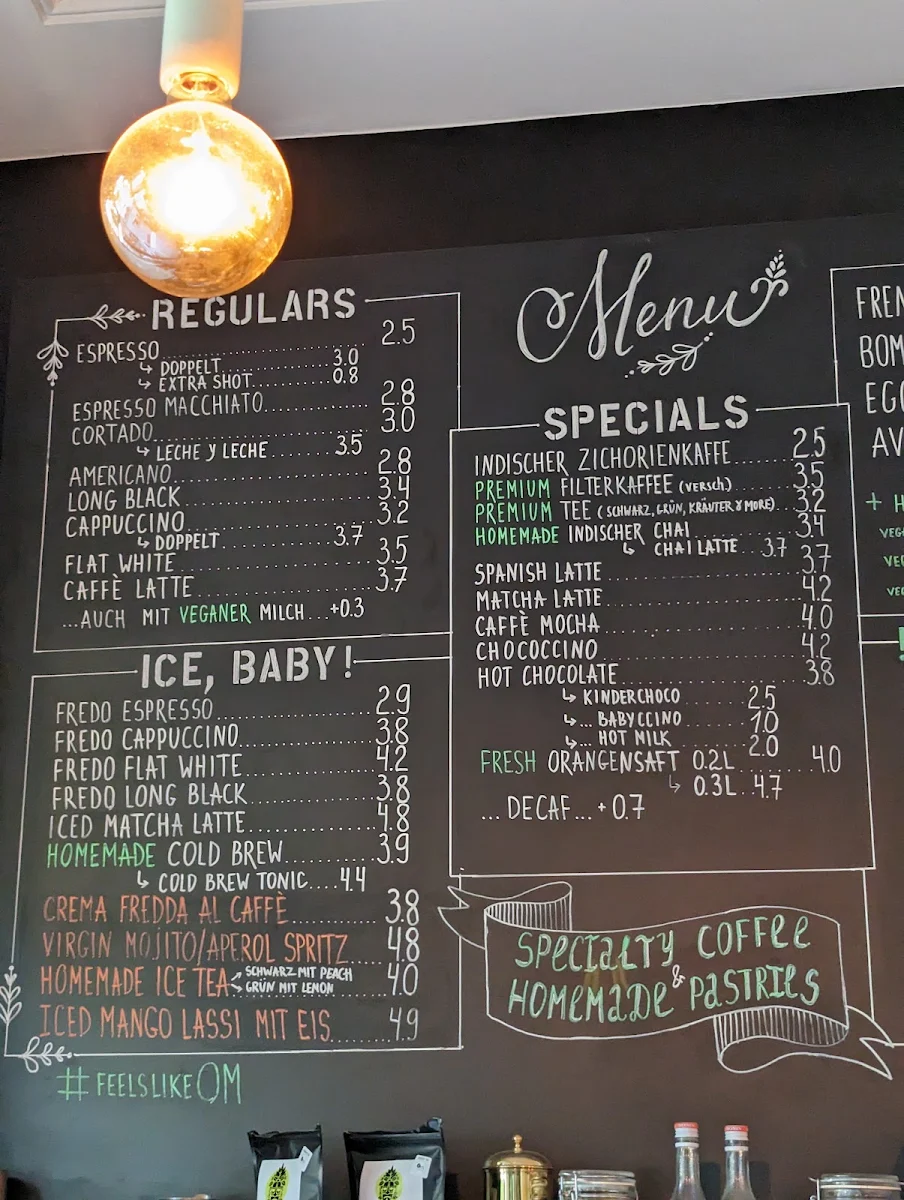 REGULARS
ESPRESSO 2.5
↳ DOPPELT 3.0
↳ EXTRA SHOT 0.8
ESPRESSO MACCHIATO 2.8
CORTADO 3.0
↳ LECHE Y LECHE 3.5
AMERICANO 2.8
LONG BLACK 3.4
CAPPUCCINO 3.2
↳ DOPPELT 3.7
FLAT WHITE 3.5
CAFFÈ LATTE 3.7
...AUCH MIT VEGANER MILCH...+0.3
ICE, BABY!
FREDO ESPRESSO 2.9
FREDO CAPPUCCINO 3.8
FREDO FLAT WHITE 4.2
FREDO LONG BLACK 3.8
ICED MATCHA LATTE 4.8
HOMEMADE COLD BREW 3.9
↳ COLD BREW TONIC....4.4
CREMA FREDDA AL CAFFÈ 3.8
VIRGIN MOJITO/APEROL SPRITZ 4.8
HOMEMADE ICE TEA SCHWARZ MIT PEACH 4.0
GRÜN MIT LEMON
ICED MANGO LASSI MIT EIS 4.9
#FEELSLIKEOM
Menu
SPECIALS
INDISCHER ZICHORIENKAFFE 2.5
PREMIUM FILTERKAFFEE (VERSCH.) 3.5
PREMIUM TEE (SCHWARZ, GRÜN, KRÄUTER & MORE) 3.2
HOMEMADE INDISCHER CHAI 3.4
↳ CHAI LATTE 3.7
SPANISH LATTE 3.7
MATCHA LATTE 4.2
CAFFÈ MOCHA 4.0
CHOCOCCINO 4.2
HOT CHOCOLATE 3.8
↳ KINDERCHOCO 2.5
↳... BABYCCINO 1.0
↳... HOT MILK 2.0
FRESH ORANGENSAFT 0.2L 4.0
↳ 0.3L 4.7
... DECAF... +0.7
SPECIALTY COFFEE
& HOMEMADE PASTRIES
FREN
BOM
EGG
AV
+ H
VEG
VE
VE